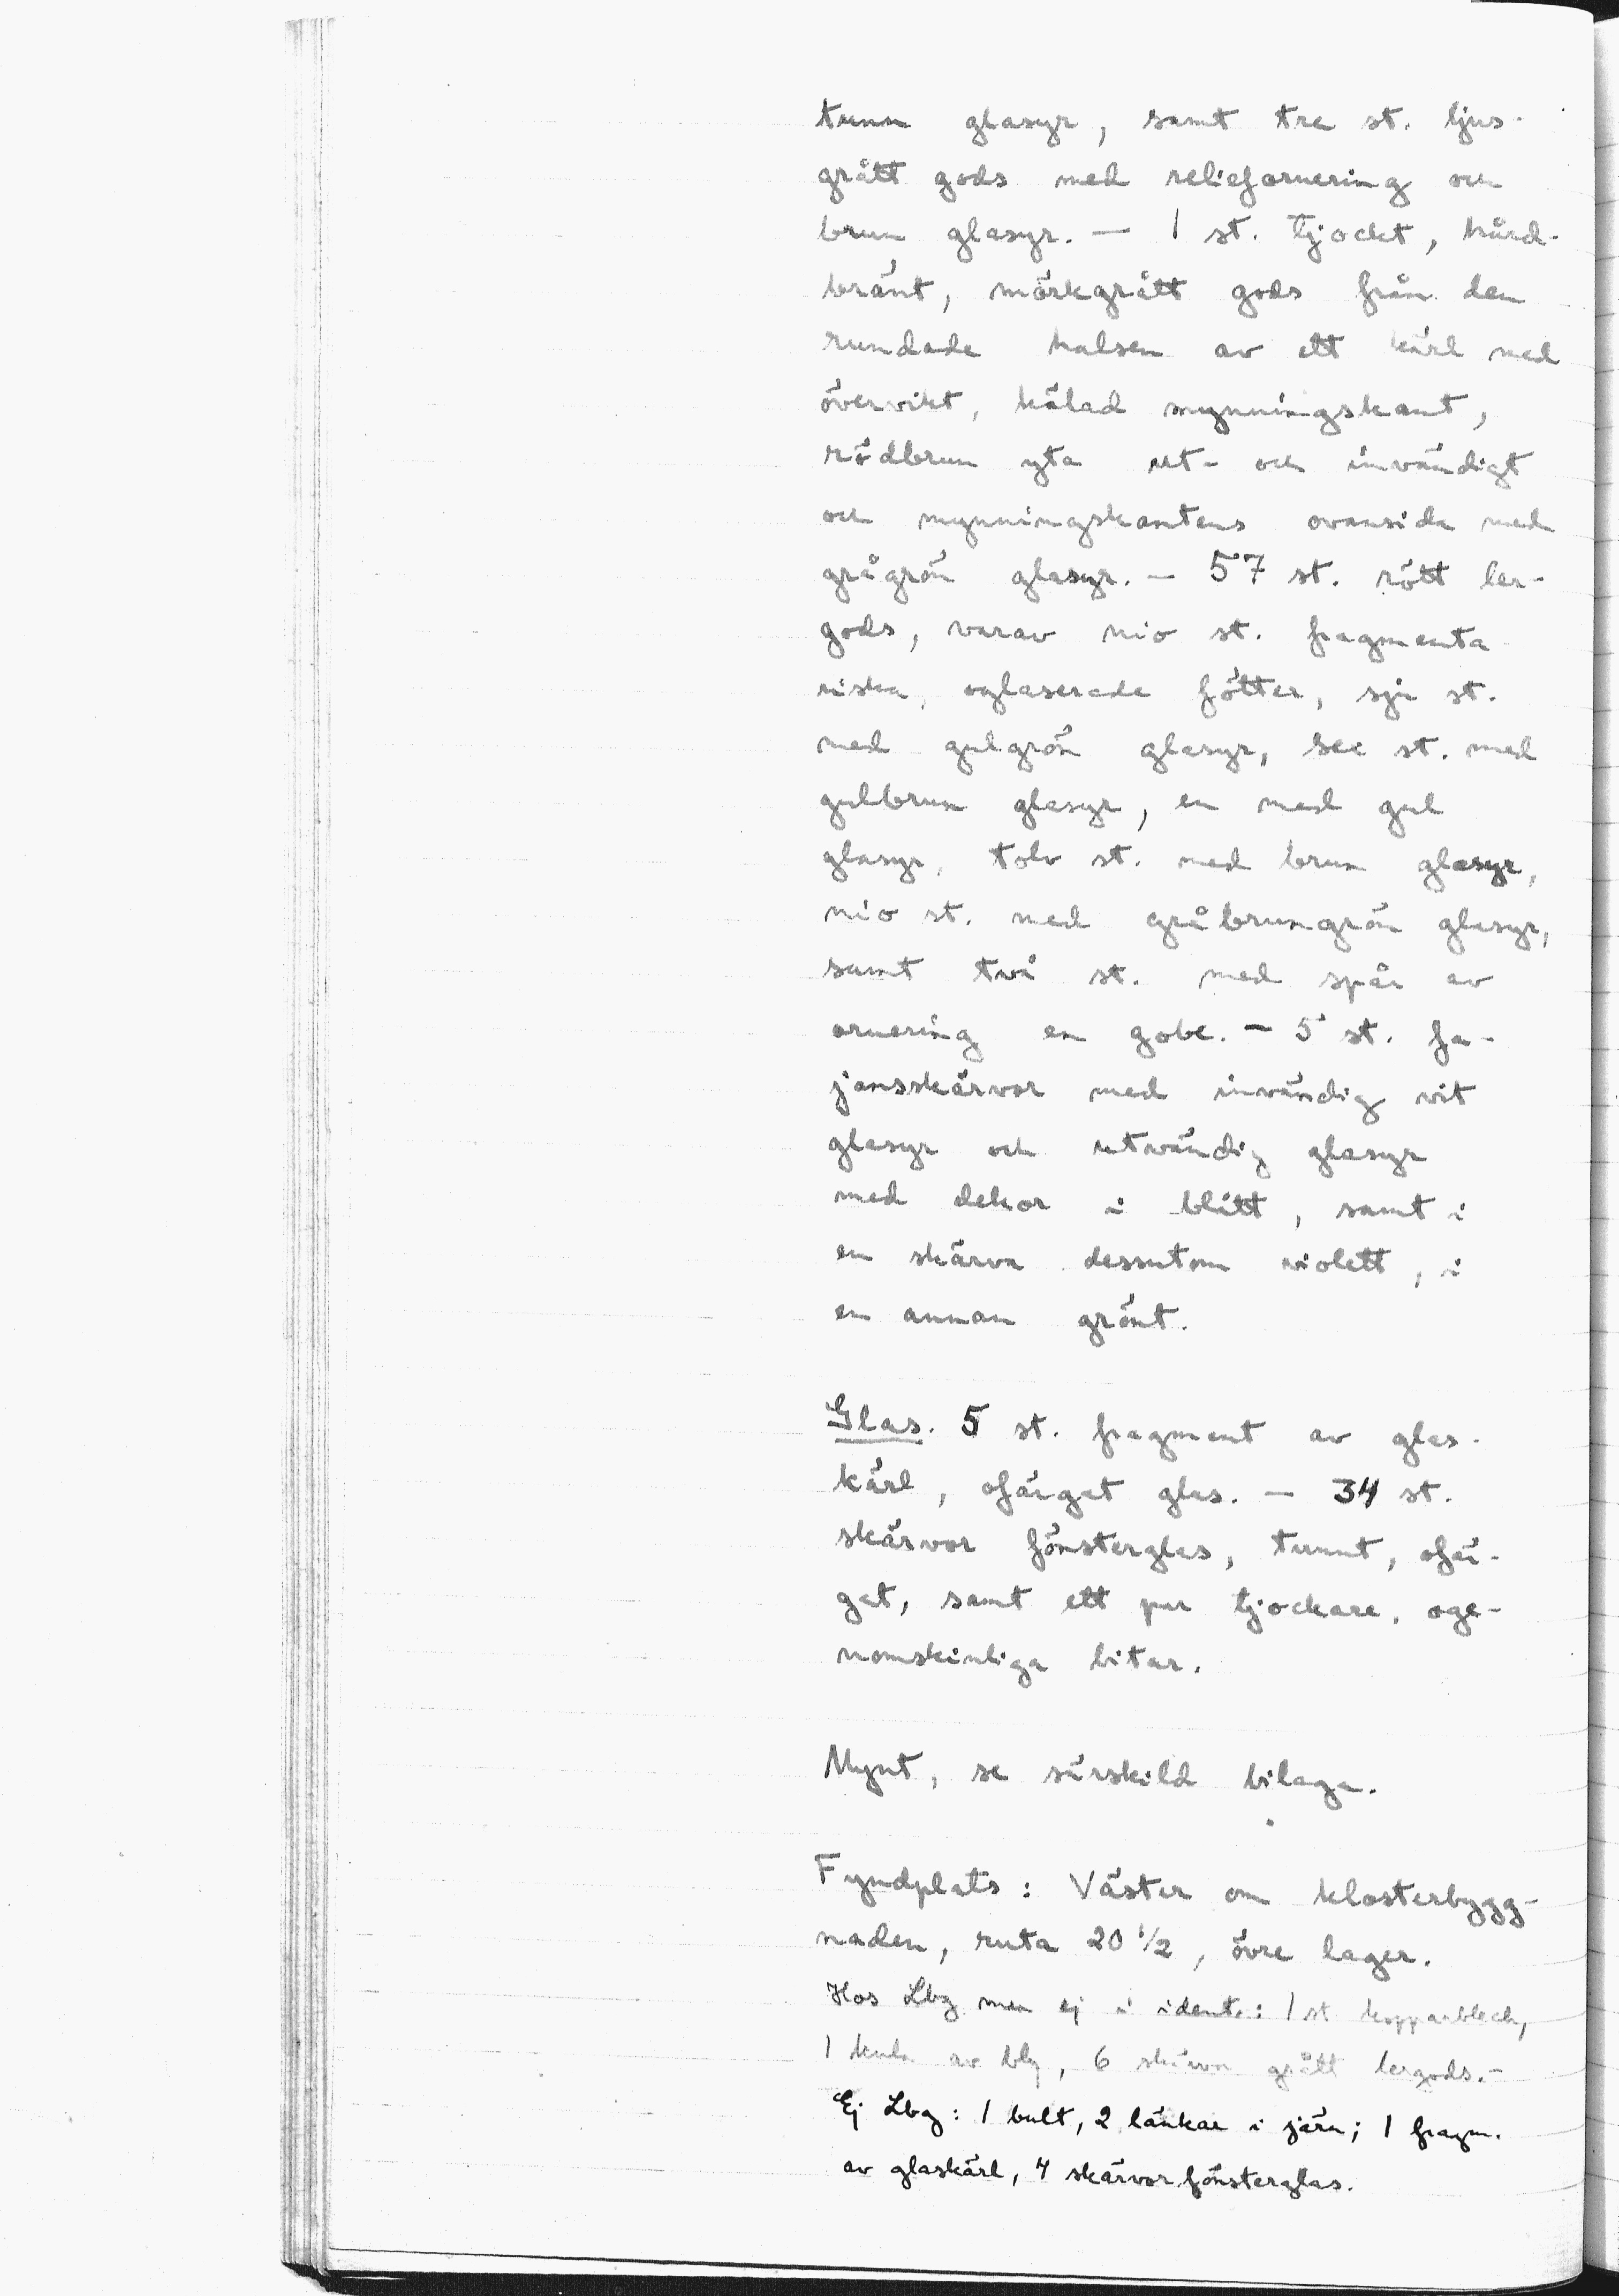 tunn glasyr, samt tre st. ljus-
grått gods med reliefornering och
brun glasyr. — 1 st. tjockt, hård-
bränt, mörkgrått gods från den
rundade halsen av ett kärl med
övervikt, kålad mynningskant,
rödbrun yta ut- och invändigt
och mynningskantens ovansida med
grågrön glasyr. — 57 st. rött ler-
gods, varav nio st. fragmenta
riska, oglaserade fötter, sju st.
med gulgrön glasyr, sex st. med
gulbrun glasyr, en med gul
glasyr, tolv st. med brun glasyr,
nio st. med gråbrungrön glasyr,
samt två st. med spår av
ornering en gobe. — 5 st. fa-
jansskärvor med invändig vit
glasyr och utvändig glasyr
med dekor i blått, samt i
en skärva dessutom violett, i
en annan grönt.
Glas. 5 st. fragment av glas-
kärl, ofärgat glas. — 34 st.
skärvor fönsterglas, tunnt, ofär-
gat, samt ett par tjockare, oge-
nomskinliga bitar.
Mynt, se särskild bilaga.
Fyndplats: Väster om klosterbygg-
naden, ruta 20 1/2, övre lager.
Hos Lbg men ej i ident.: 1 st kopparbleck,
1 kula av bly, 6 skärvor grått lergods.—
Ej Lbg: 1 bult, 2 länkar i järn; 1 fragm.
av glaskärl, 4 skärvor fönsterglas.